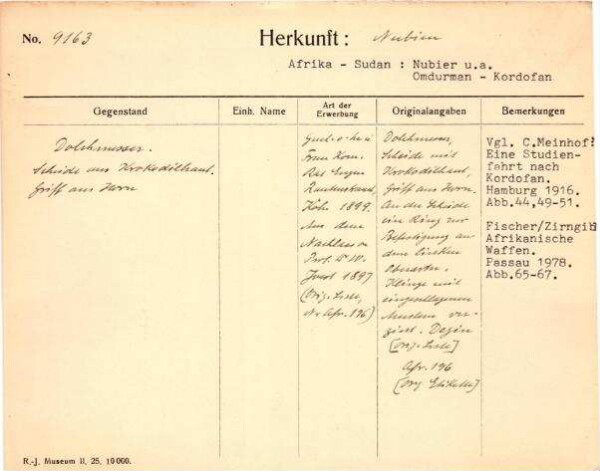 No. 9163
Herkunft: Nubien
Afrika - Sudan : Nubier u.a.
Omdurman - Kordofan
Gegenstand
Einh. Name
Art der
Erwerbung
Originalangaben
Bemerkungen
Dolchmesser.
Scheide aus Krokodilhaut.
Griff aus Horn
Frau Kom.
Rautenstrauch,
Köln 1899.
Aus dem
Nachlass v.
Prof. Dr. W.
Joest 1897
(Orig. Liste,
Afr. 196)
Dolchmesser,
Scheide mit
Krokodilhaut,
Griff aus Horn.
An der Scheide
ein Ring zur
Befestigung an
dem linken
Oberarm.
Klinge mit
eingeschlagenen
Mustern ver-
ziert.
[Orig. Liste]
Afr. 196
[Orig. Etikette]
Vgl. C.Meinhof:
Eine Studien-
fahrt nach
Kordofan.
Hamburg 1916.
Abb.44,49-51.
Fischer/Zirngibl
Afrikanische
Waffen.
Passau 1978.
Abb.65-67.
R.-J. Museum II, 25, 10000.